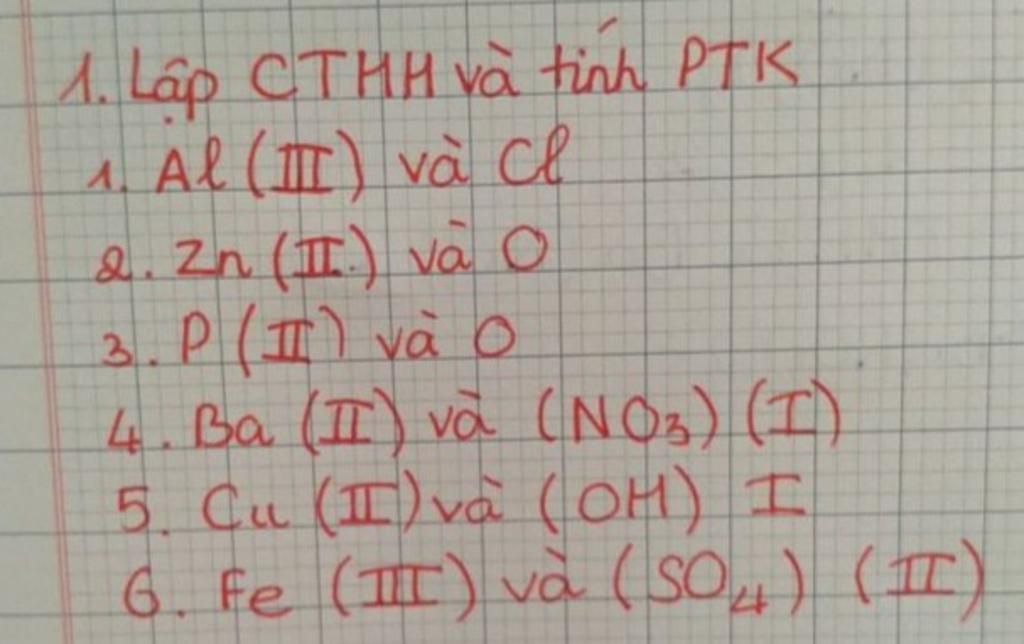 1. Lập CTHH và tính PTK
1. Al (III) và Cl
2. Zn (II) và O
3. P (II) và O
4. Ba (II) và (NO₃) (I)
5. Cu (II) và (OH) I
6. Fe (III) và (SO₄) (II)